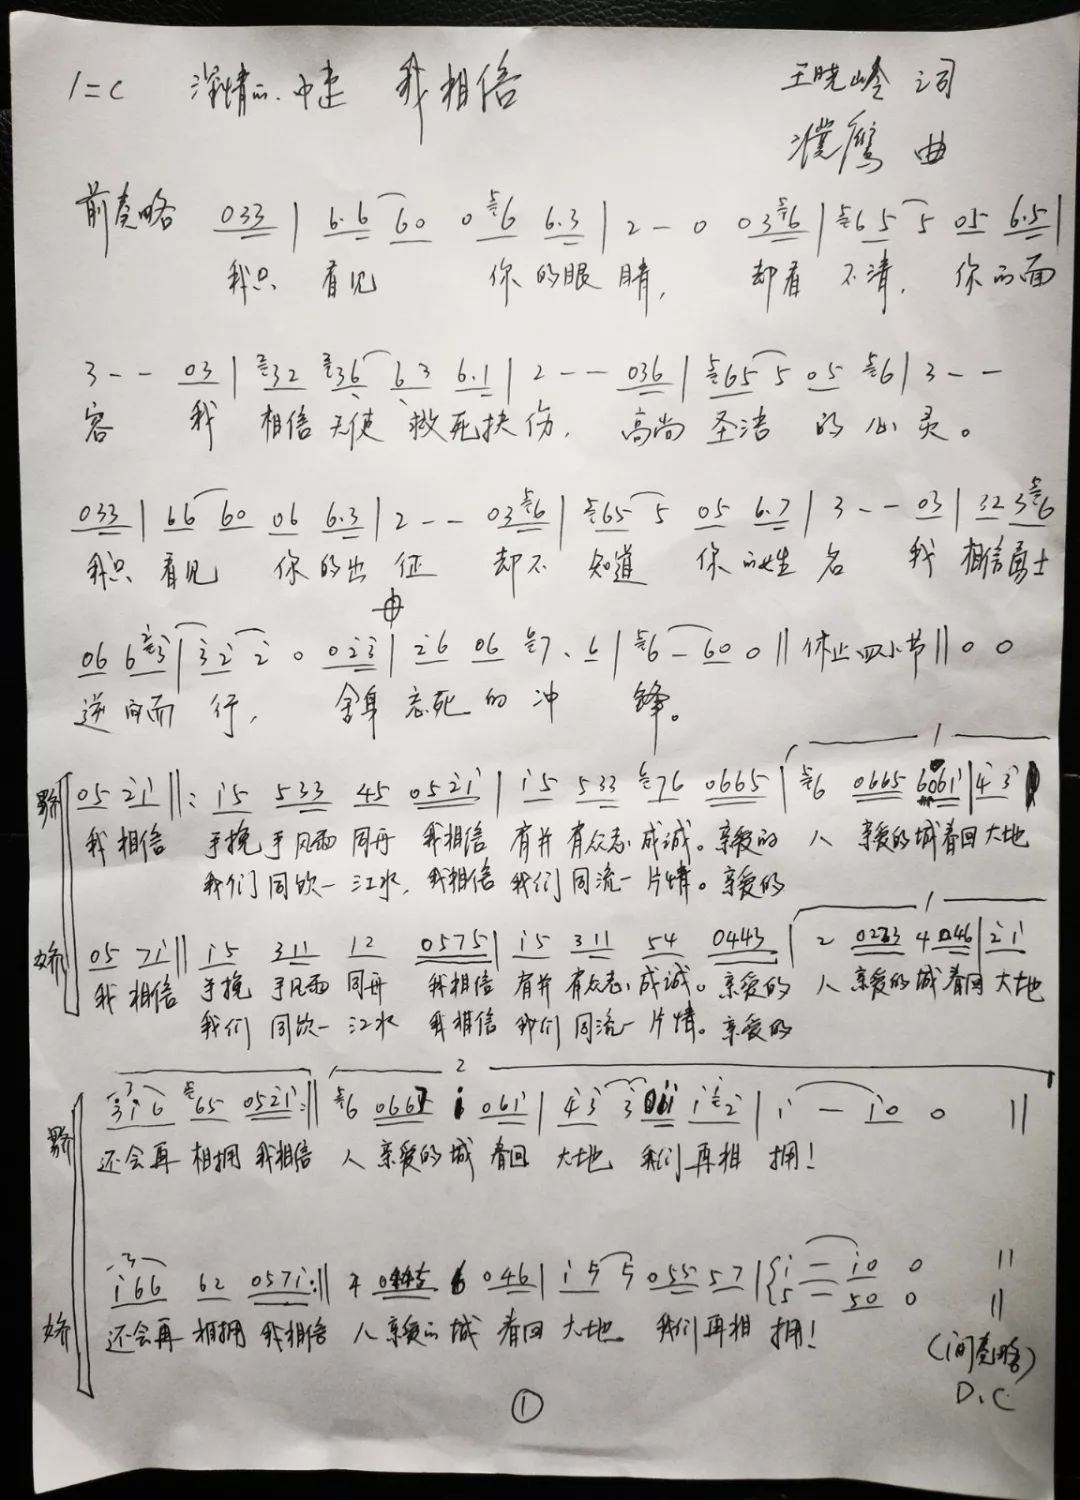 1=C 深情的.中速 我相信 王晓岭 词
濮鹰 曲
前奏略 033 | 6.6 60 0 6 6.3 | 2 - 0 036 | 65 5 05 6.5 |
我只 看见 你的眼睛, 却看 不清, 你的面
3 - - 03 | 32 36 63 6.1 | 2 - - 036 | 65 5 05 6 | 3 - -
容 我 相信天使、救死扶伤, 高尚 圣洁 的心灵。
033 | 66 60 06 6.3 | 2 - - 036 | 65 5 05 6.7 | 3 - - 03 | 32 36
我只 看见 你的出征 却不 知道 你的姓名 我 相信勇士
06 63 | 32 2 0 023 | 26 06 7.6 | 6 - 60 0 || 休止四小节 || 0 0
逆向而 行, 舍身 忘死的冲 锋。
1
05 21 ||: 15 533 45 0521 | 15 533 76 0665 | 6 0665 6061 | 43
我相信 手挽手风雨同舟 我相信 有并有众志成诚。亲爱的 人 亲爱的城春回大地
我们同饮一江水, 我相信 我们同流一片情。亲爱的
1
05 71 || 15 311 12 0575 | 15 311 54 0443 | 2 0233 4046 | 21
我相信 手挽手风雨同舟 我相信 有并有众志成诚。亲爱的 人 亲爱的城春回大地
我们同饮一江水 我相信 我们同流一片情。亲爱的
2
3
316 65 0521 :|| 6 066 061 | 43 3 12 | 1 - 10 0 ||
还会再 相拥 我相信 人 亲爱的城 春回 大地 我们再相 拥!
3
166 62 0571 :|| 4 6 046 | 15 5 055 57 | 1 - 10 0 ||
5 - 50 0 ||
还会再 相拥 我相信 人亲爱的城 春回大地 我们再相 拥!
(间奏略)
D.C
①